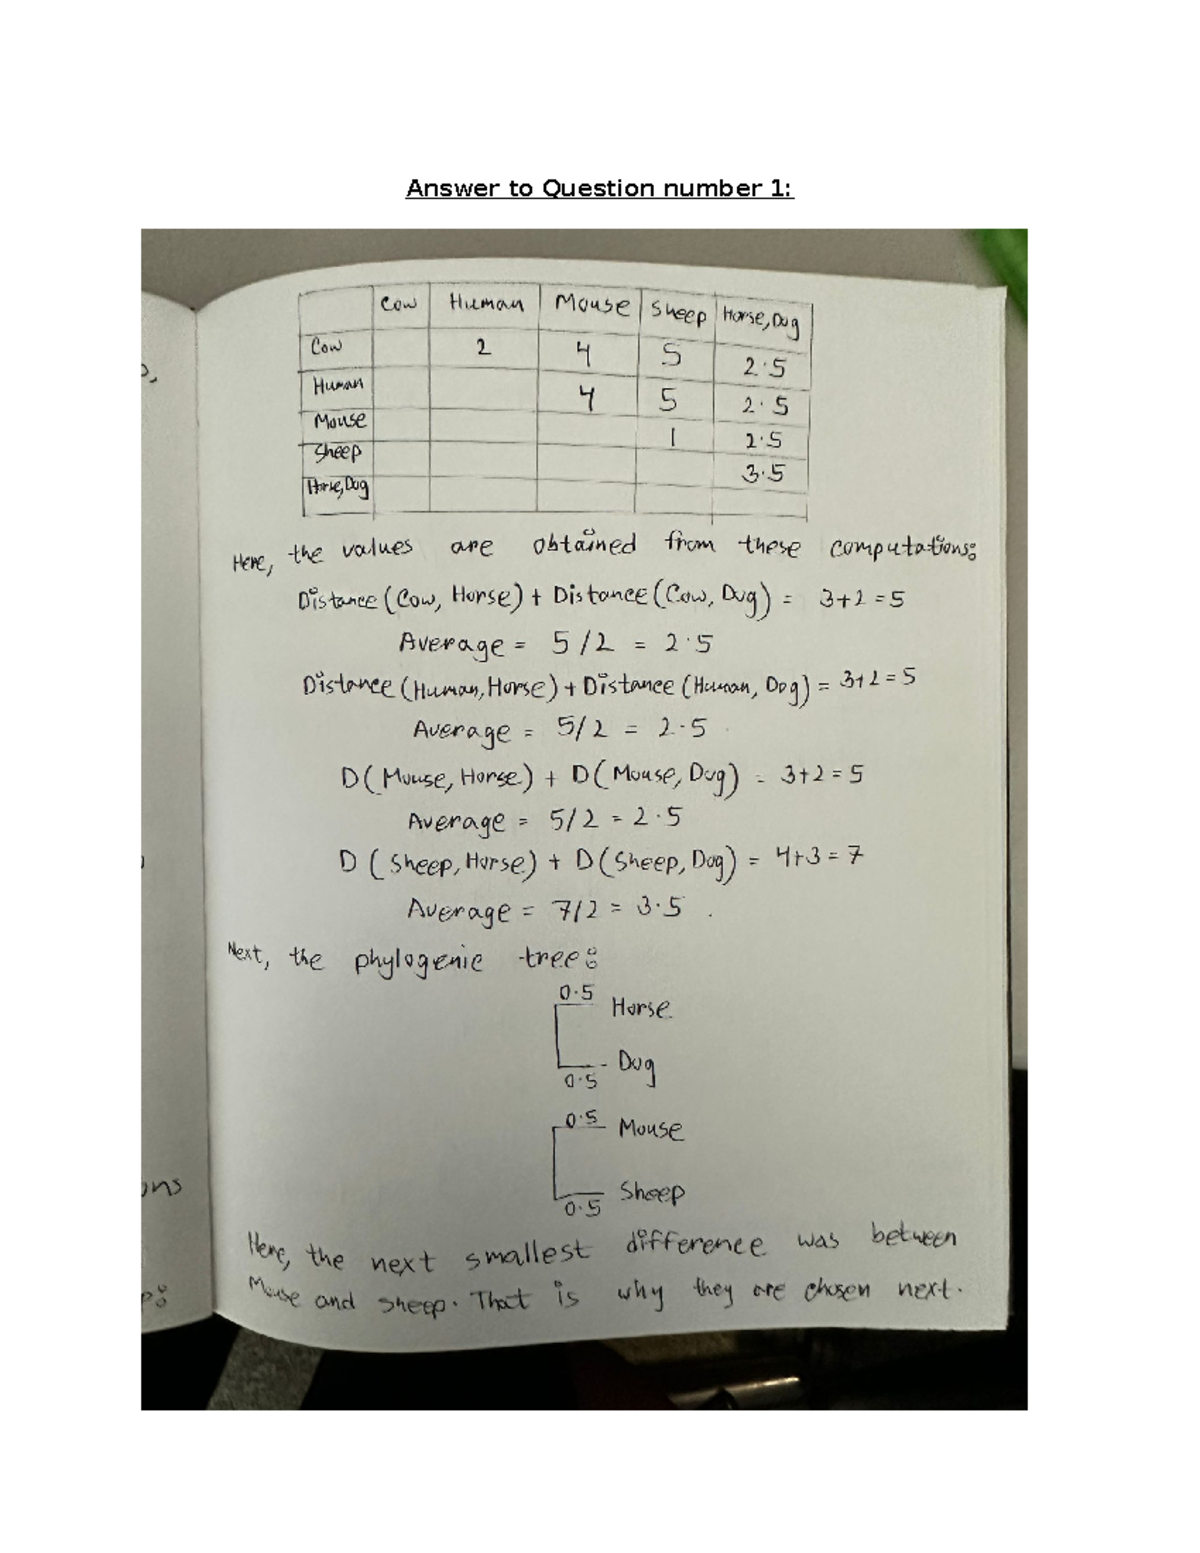 Answer to Question number 1:
Cow Human Mouse Sheep Horse, Dog
Cow 2 4 5 2.5
Human 4 5 2.5
Mouse 1 2.5
Sheep 3.5
Horse, Dog
Here, the values are obtained from these computations:
Distance (Cow, Horse) + Distance (Cow, Dog) = 3+2 = 5
Average = 5/2 = 2.5
Distance (Human, Horse) + Distance (Human, Dog) = 3+2 = 5
Average = 5/2 = 2.5
D (Mouse, Horse) + D (Mouse, Dog) = 3+2 = 5
Average = 5/2 = 2.5
D (Sheep, Horse) + D (Sheep, Dog) = 4+3 = 7
Average = 7/2 = 3.5.
Next, the phylogenic tree:
0.5 Horse
Dog
0.5
0.5 Mouse
Sheep
0.5
Here, the next smallest difference was between
Mouse and sheep. That is why they are chosen next.